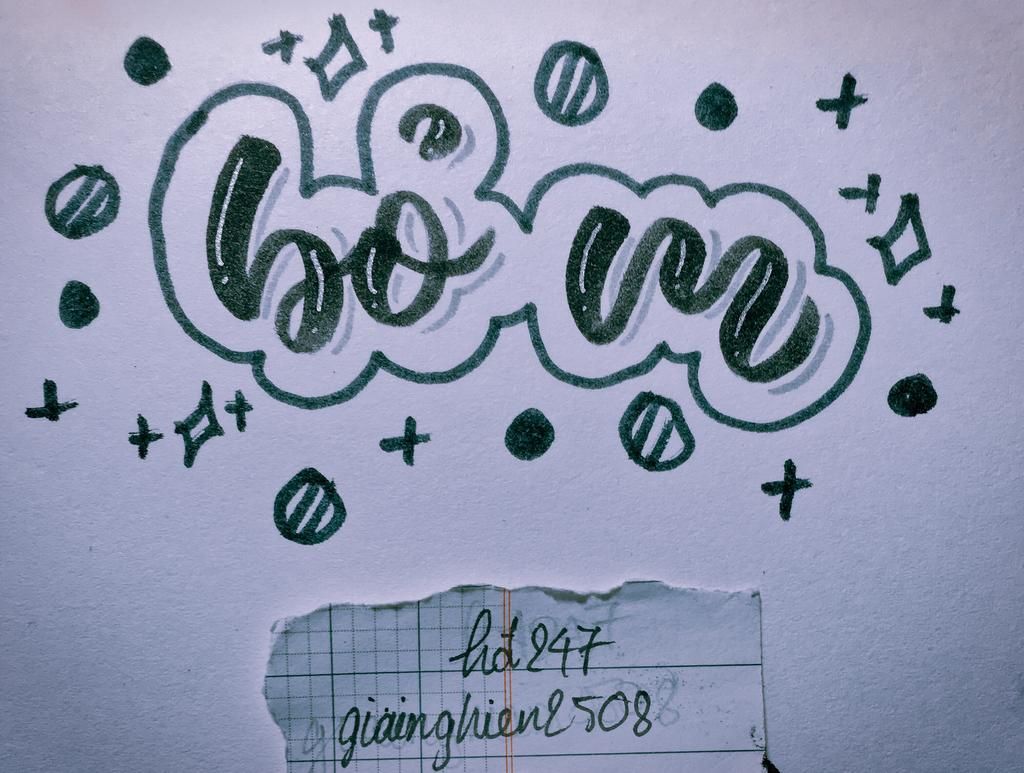 bỏ m
hđ247
giainghien2508